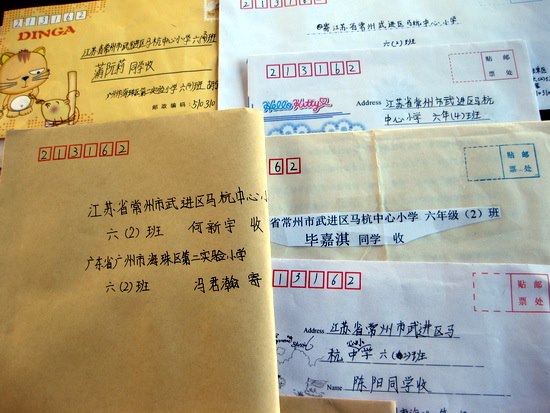 213162
DINGA
江苏省常州市武进区马杭中心小学 六
满阮莉 同学收
广州市海珠区第二实验小学
邮政编码：510310
213162
寄江苏省常州市武进区马杭中心小学
六(2)班
213162
贴 邮
票 处
Hello Kitty
Address 江苏省常州市武进区马杭
中心小学 六年(4)班
213162
江苏省常州市武进区马杭中心小
六(2)班 何新宇 收
广东省广州市海珠区第二实验小学
六(2)班 冯君瀚 寄
62
贴 邮
票 处
省常州市武进区马杭中心小学 六年级（2）班
毕嘉淇 同学 收
213162
贴 邮
票 处
Address 江苏省常州市武进区马
杭中心小学 六(2)班
Name 陈阳同学收